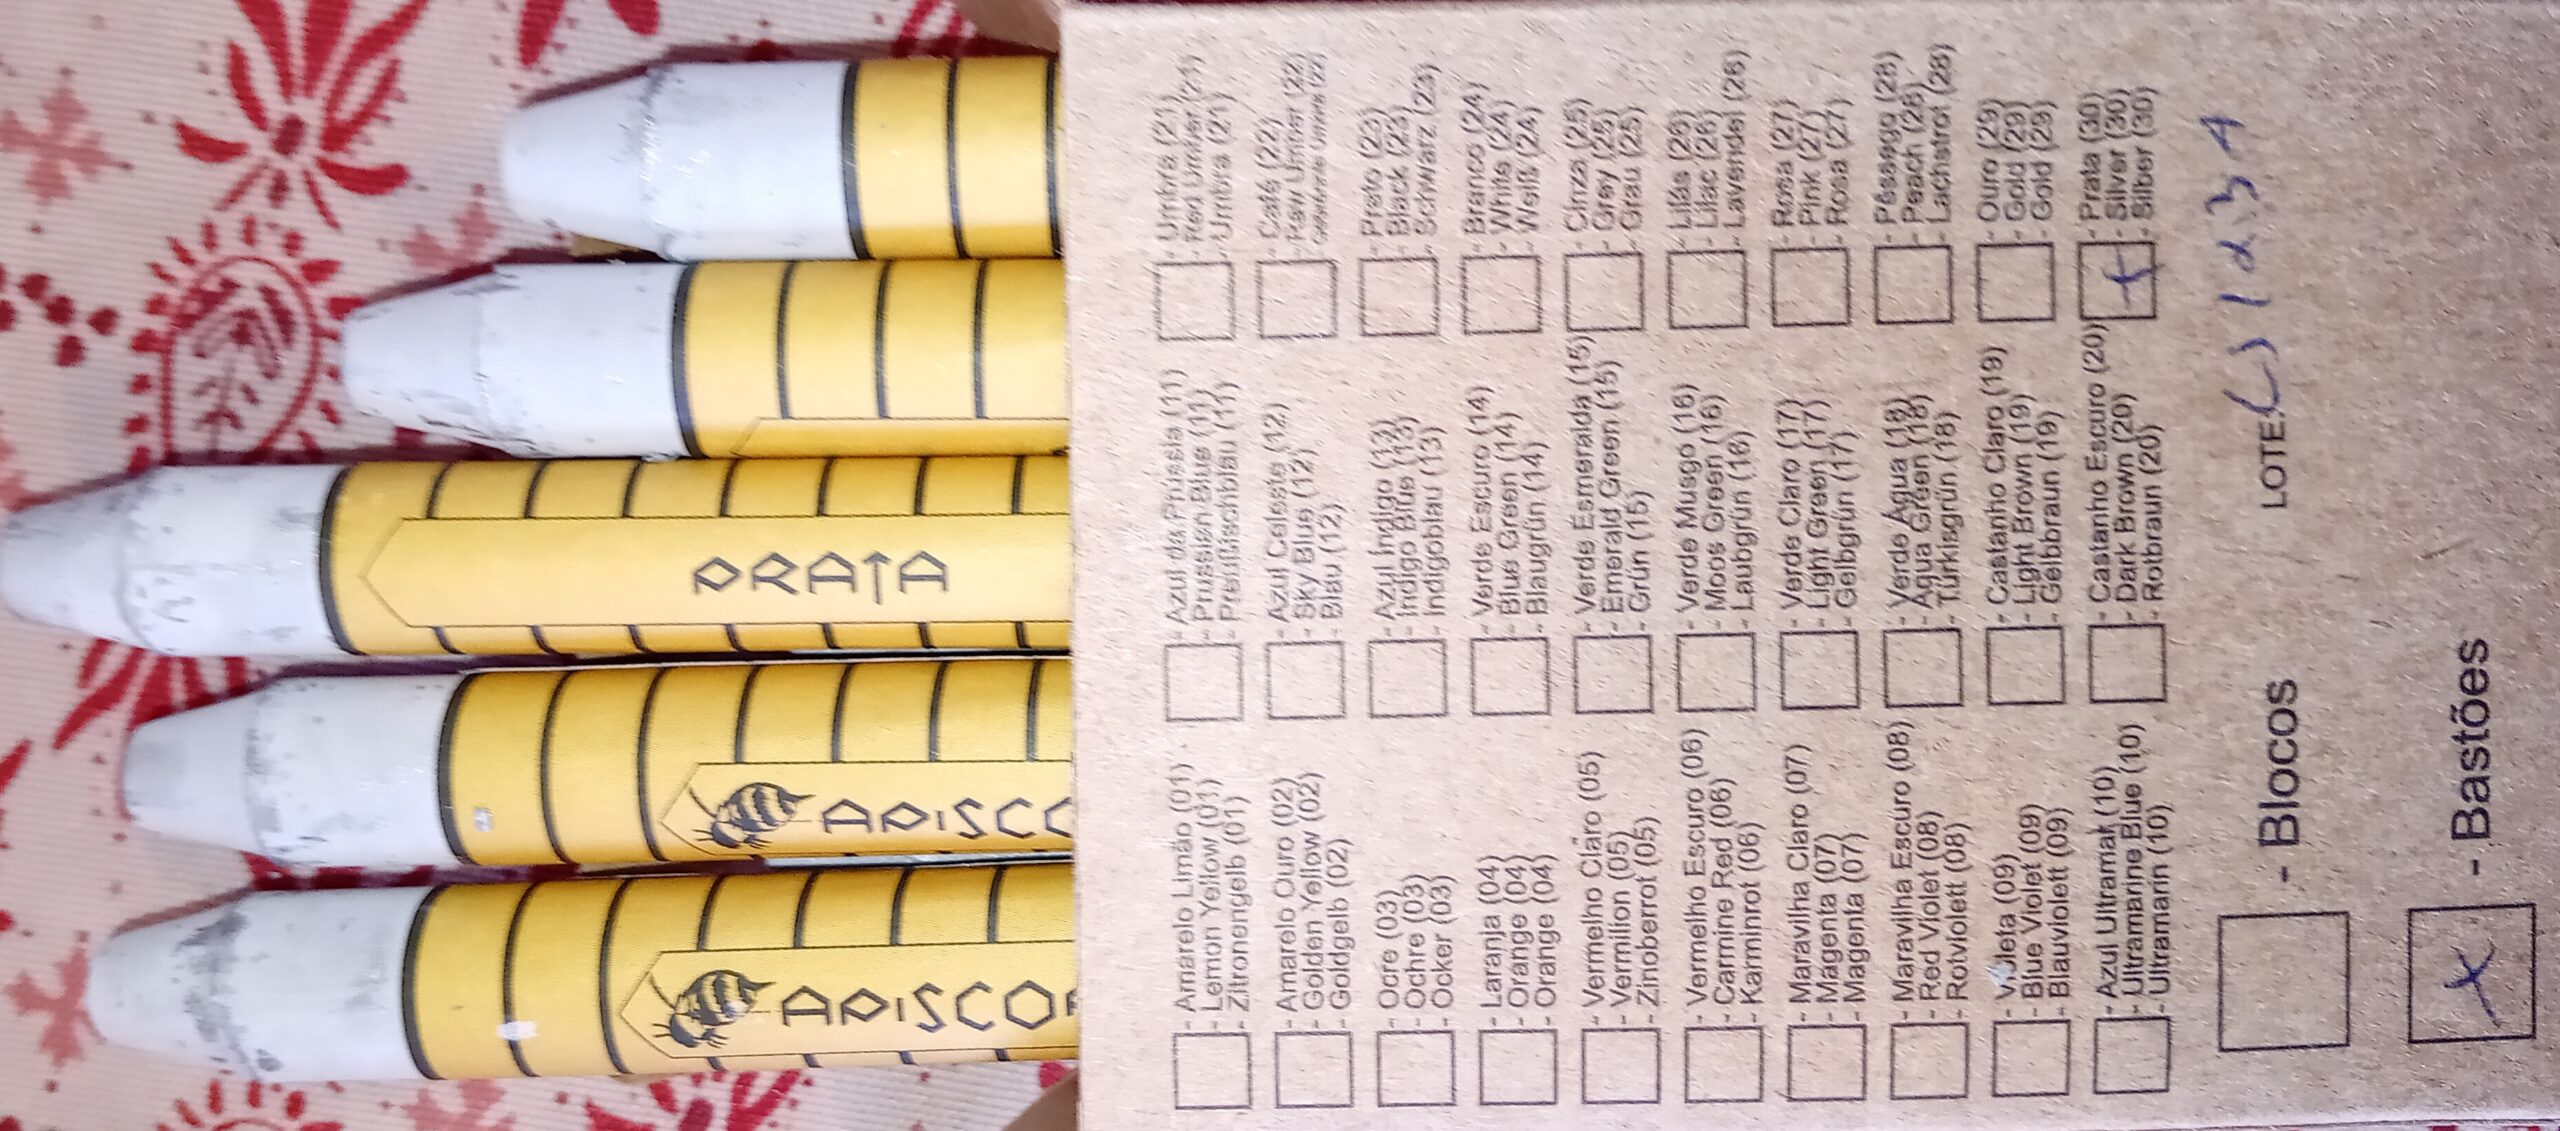 PRATA
APISCO
APISCOR
- Amarelo Limão (01)
- Lemon Yellow (01)
- Zitronengelb (01)
- Amarelo Ouro (02)
- Golden Yellow (02)
- Goldgelb (02)
- Ocre (03)
- Ochre (03)
- Ocker (03)
- Laranja (04)
- Orange (04)
- Orange (04)
- Vermelho Claro (05)
- Vermilion (05)
- Zinoberrot (05)
- Vermelho Escuro (06)
- Carmine Red (06)
- Karminrot (06)
- Maravilha Claro (07)
- Magenta (07)
- Magenta (07)
- Maravilha Escuro (08)
- Red Violet (08)
- Rotviolett (08)
- Violeta (09)
- Blue Violet (09)
- Blauviolett (09)
- Azul Ultramar (10)
- Ultramarine Blue (10)
- Ultramarin (10)
- Azul da Prússia (11)
- Prussian Blue (11)
- Preußischblau (11)
- Azul Celeste (12)
- Sky Blue (12)
- Blau (12)
- Azul Índigo (13)
- Indigo Blue (13)
- Indigoblau (13)
- Verde Escuro (14)
- Blue Green (14)
- Blaugrün (14)
- Verde Esmeralda (15)
- Emerald Green (15)
- Grün (15)
- Verde Musgo (16)
- Moos Green (16)
- Laubgrün (16)
- Verde Claro (17)
- Light Green (17)
- Gelbgrün (17)
- Verde Água (18)
- Aqua Green (18)
- Türkisgrün (18)
- Castanho Claro (19)
- Light Brown (19)
- Gelbbraun (19)
- Castanho Escuro (20)
- Dark Brown (20)
- Rotbraun (20)
- Umbra (21)
- Red Umber (21)
- Umbra (21)
- Café (22)
- Raw Umber (22)
- Preto (23)
- Black (23)
- Schwarz (23)
- Branco (24)
- White (24)
- Weiß (24)
- Cinza (25)
- Grey (25)
- Grau (25)
- Lilás (26)
- Lilac (26)
- Lavendel (26)
- Rosa (27)
- Pink (27)
- Rosa (27)
- Pêssego (28)
- Peach (28)
- Lachsrot (28)
- Ouro (29)
- Gold (29)
- Gold (29)
- Prata (30)
- Silver (30)
- Silber (30)
- Blocos
LOTE:
- Bastões